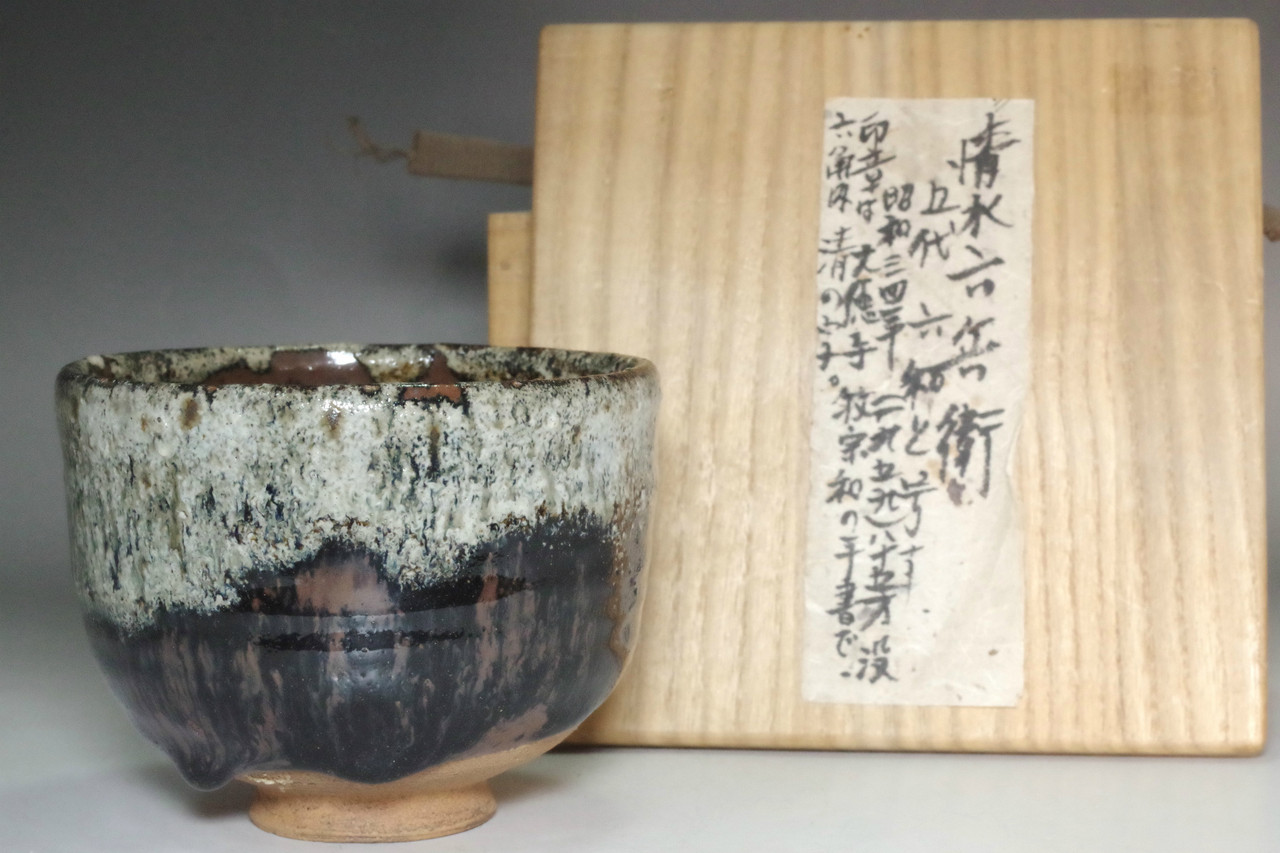 清水六兵衛
五代 六和と号す
昭和三四年(一九五九)八十五才没
印章は 大徳寺 牧宗和の筆書で、
六角内 清の字。